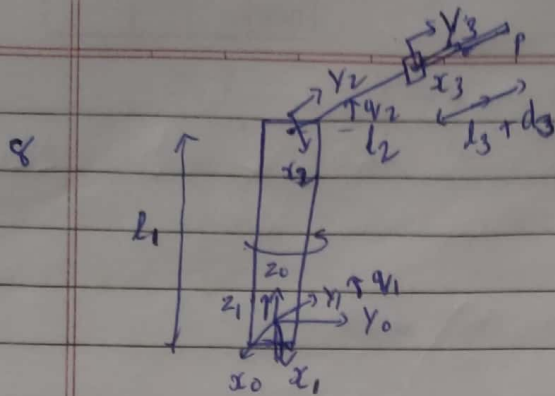 Y3
P
Y2
x3
8
q2
l2
l3 + d3
x2
l1
z0
z1
Y1
q1
Y0
x0
x1